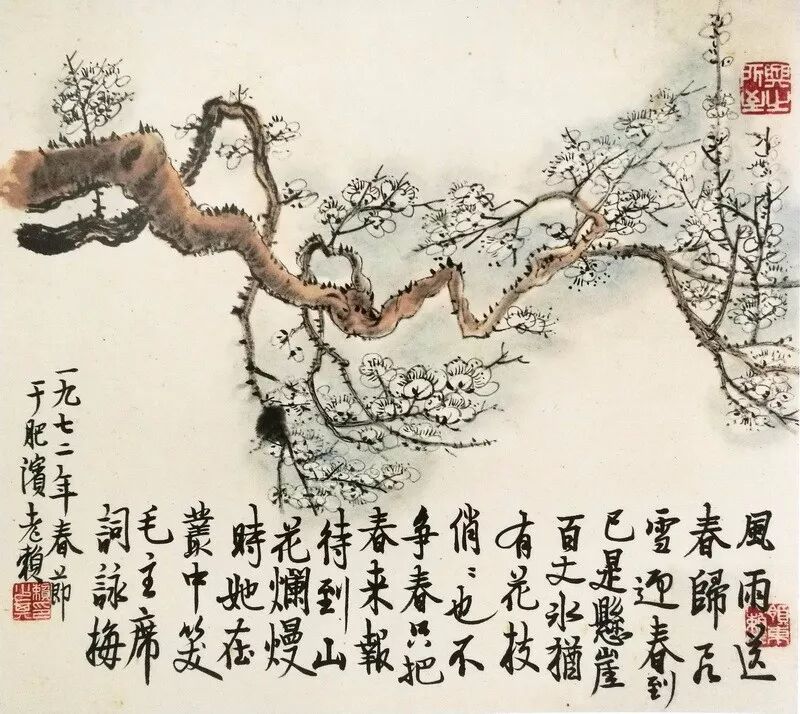 興之
所至
風雨送
春歸飞
雪迎春到
已是懸崖
百丈冰猶
有花枝
俏〻也不
争春只把
春来報
待到山
花爛熳
時她在
叢中笑
毛主席
詞詠梅
一九七二年春節
于肥濱老賴